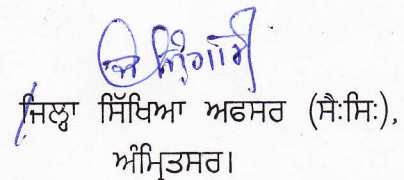 ਜਿਲ੍ਹਾ ਸਿੱਖਿਆ ਅਫਸਰ (ਸੈ:ਸਿ:),
ਅੰਮ੍ਰਿਤਸਰ।